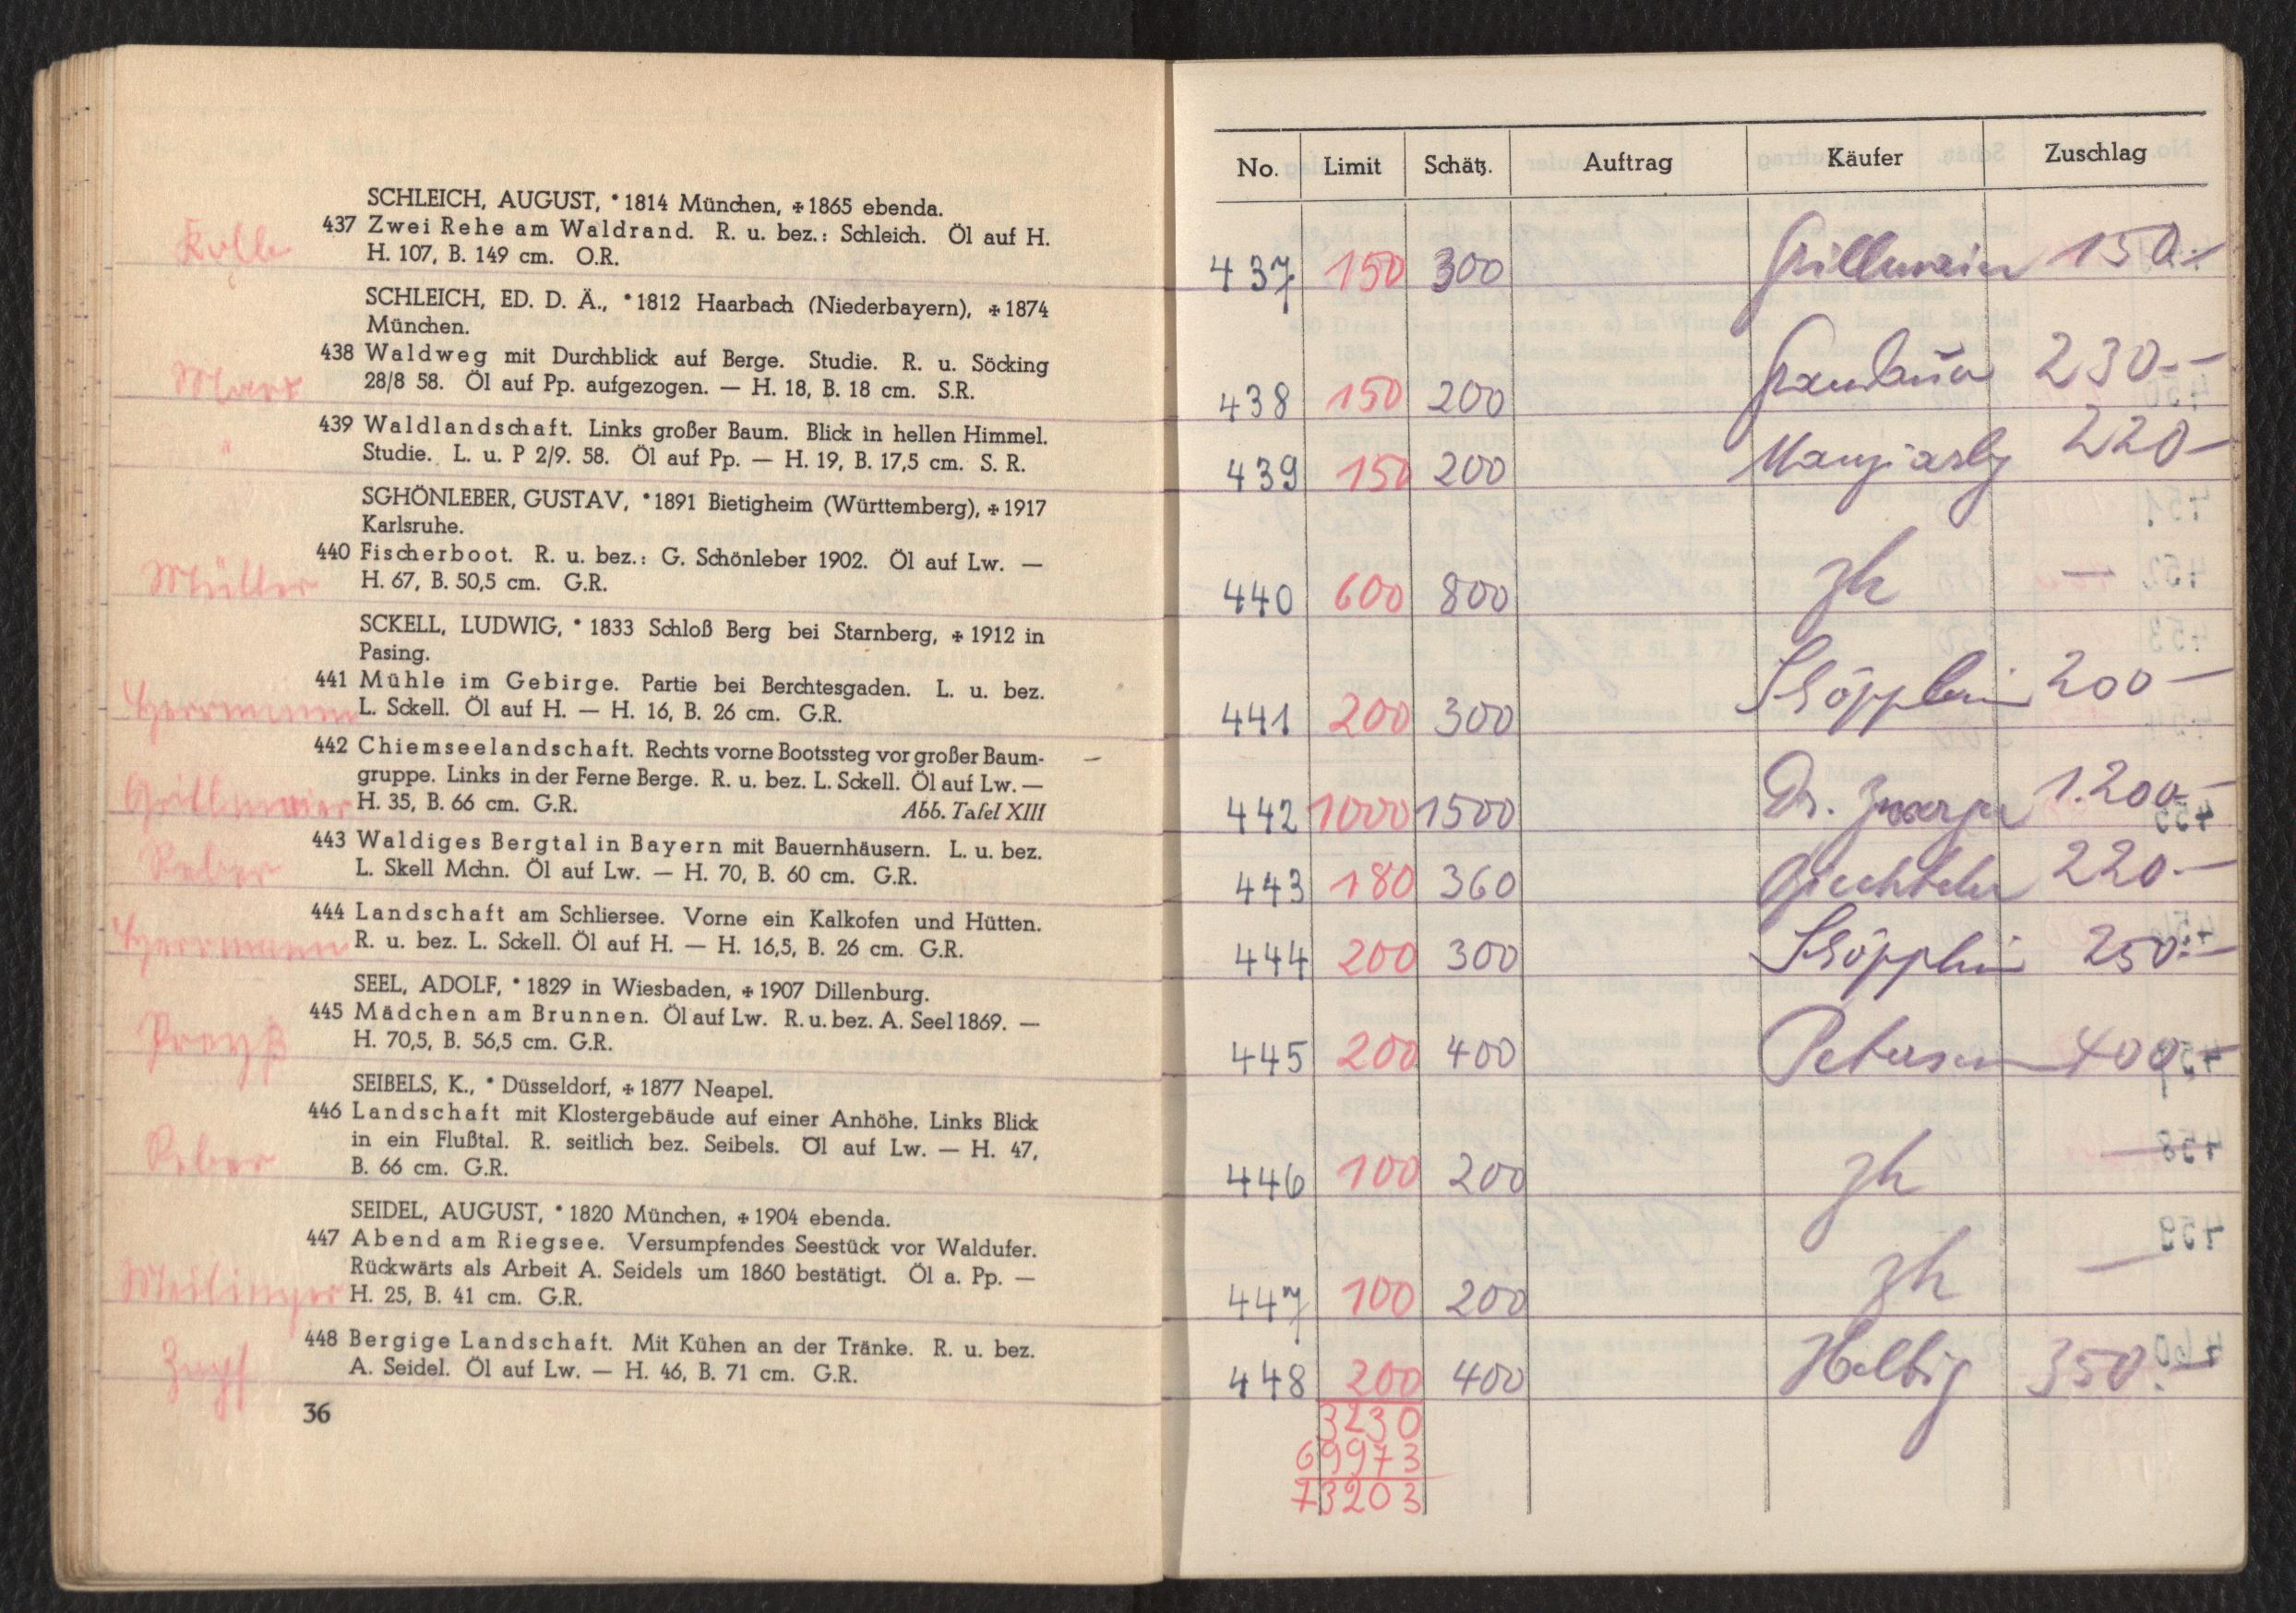 SCHLEICH, AUGUST, *1814 München, ✠1865 ebenda.
437 Zwei Rehe am Waldrand. R. u. bez.: Schleich. Öl auf H.
H. 107, B. 149 cm. O.R.
SCHLEICH, ED. D. Ä., *1812 Haarbach (Niederbayern), ✠1874
München.
Marx
438 Waldweg mit Durchblick auf Berge. Studie. R. u. Söcking
28/8 58. Öl auf Pp. aufgezogen. — H. 18, B. 18 cm. S.R.
"
439 Waldlandschaft. Links großer Baum. Blick in hellen Himmel.
Studie. L. u. P 2/9. 58. Öl auf Pp. — H. 19, B. 17,5 cm. S. R.
SGHÖNLEBER, GUSTAV, *1891 Bietigheim (Württemberg), ✠1917
Karlsruhe.
Müller
440 Fischerboot. R. u. bez.: G. Schönleber 1902. Öl auf Lw. —
H. 67, B. 50,5 cm. G.R.
SCKELL, LUDWIG, *1833 Schloß Berg bei Starnberg, ✠1912 in
Pasing.
Herrmann
441 Mühle im Gebirge. Partie bei Berchtesgaden. L. u. bez.
L. Sckell. Öl auf H. — H. 16, B. 26 cm. G.R.
Grillmaier
442 Chiemseelandschaft. Rechts vorne Bootssteg vor großer Baum- –
gruppe. Links in der Ferne Berge. R. u. bez. L. Sckell. Öl auf Lw. —
H. 35, B. 66 cm. G.R. Abb. Tafel XIII
Reber
443 Waldiges Bergtal in Bayern mit Bauernhäusern. L. u. bez.
L. Skell Mchn. Öl auf Lw. — H. 70, B. 60 cm. G.R.
Herrmann
444 Landschaft am Schliersee. Vorne ein Kalkofen und Hütten.
R. u. bez. L. Sckell. Öl auf H. — H. 16,5, B. 26 cm. G.R.
SEEL, ADOLF, *1829 in Wiesbaden, ✠1907 Dillenburg.
Preyß
445 Mädchen am Brunnen. Öl auf Lw. R. u. bez. A. Seel 1869. —
H. 70,5, B. 56,5 cm. G.R.
SEIBELS, K., * Düsseldorf, ✠1877 Neapel.
Reber
446 Landschaft mit Klostergebäude auf einer Anhöhe. Links Blick
in ein Flußtal. R. seitlich bez. Seibels. Öl auf Lw. — H. 47,
B. 66 cm. G.R.
SEIDEL, AUGUST, *1820 München, ✠1904 ebenda.
Meilinger
447 Abend am Riegsee. Versumpfendes Seestück vor Waldufer.
Rückwärts als Arbeit A. Seidels um 1860 bestätigt. Öl a. Pp. —
H. 25, B. 41 cm. G.R.
Zapf
448 Bergige Landschaft. Mit Kühen an der Tränke. R. u. bez.
A. Seidel. Öl auf Lw. — H. 46, B. 71 cm. G.R.
36
No. Limit Schätz. Auftrag Käufer Zuschlag
437 150 300 Grillmaier 150.-
438 150 200 230.-
439 150 200 220-
440 600 800 zh —
441 200 300 Schöpplein 200-
442 1000 1500 Dr. 1.200.-
443 180 360 220.-
444 200 300 Schöpplein 250.-
445 200 400 Petersen 400.-
446 100 200 zh —
447 100 200 zh —
448 200 400 Helbig 350.-
3230
69973
73203